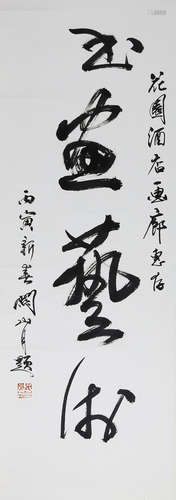 花園酒店画廊惠存
书画藝术
丙寅新春關山月題